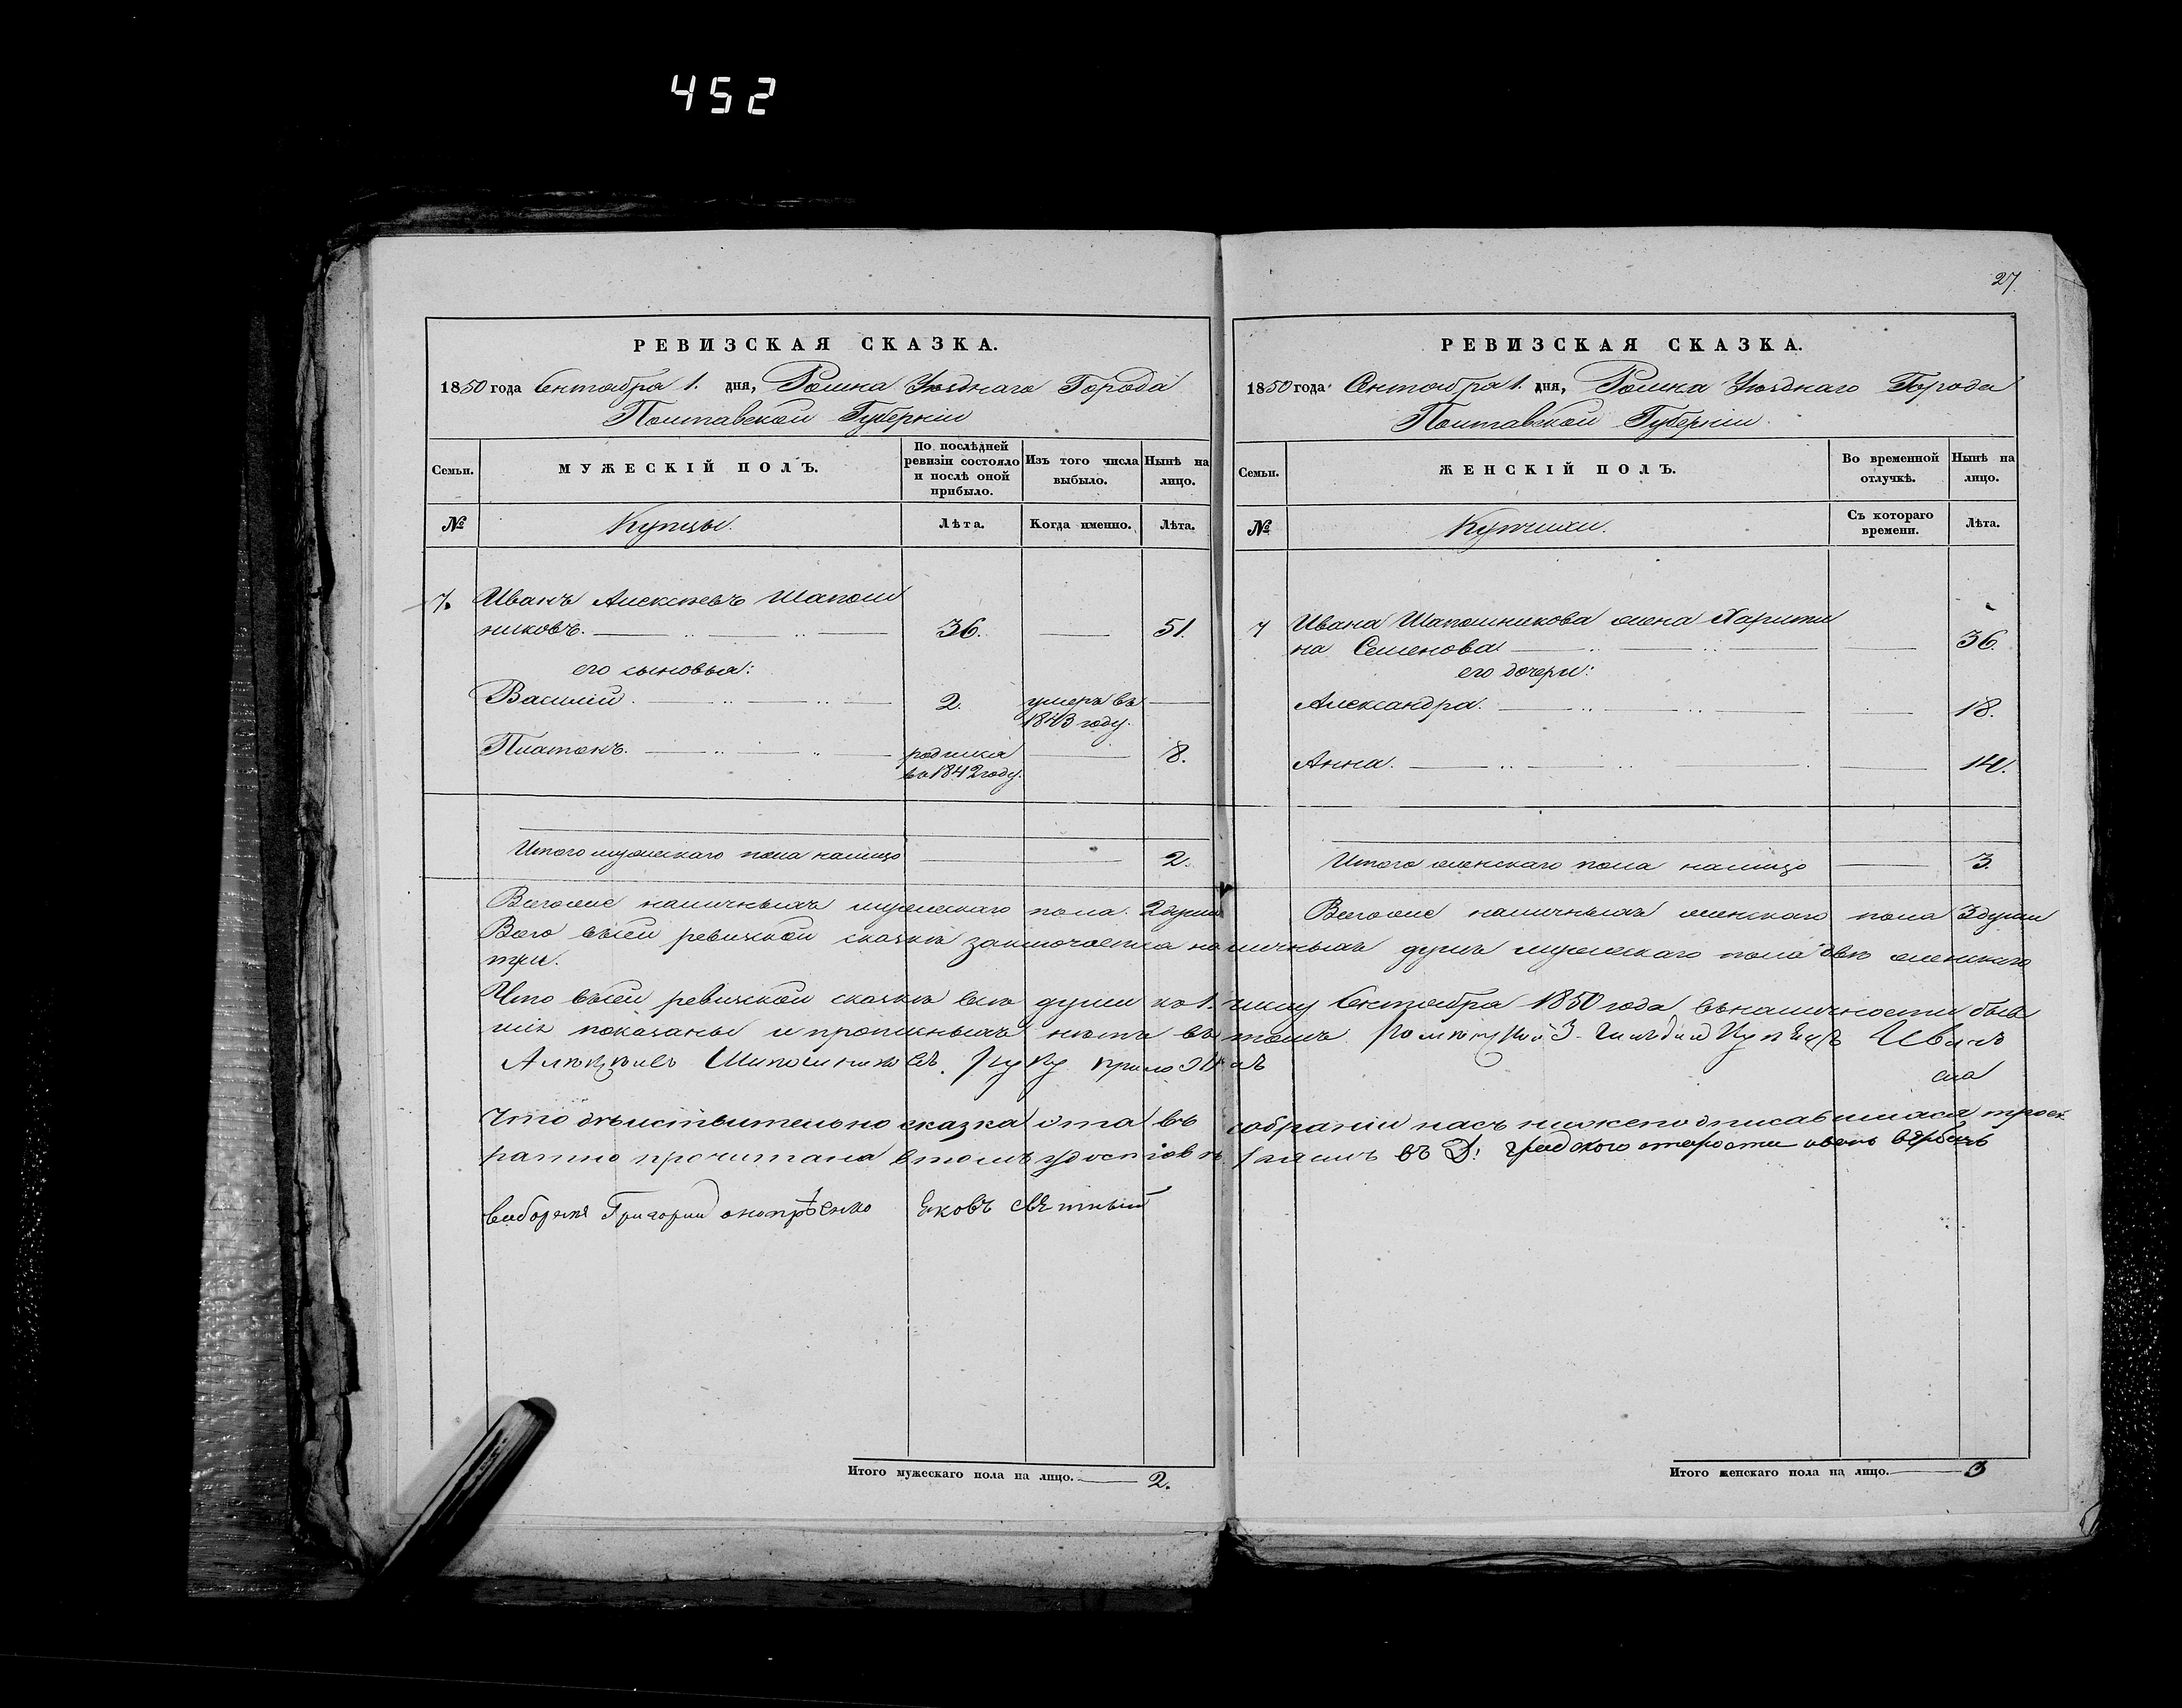 452
27
РЕВИЗСКАЯ СКАЗКА.
1850 года Октября 1. дня, Ромна Уѣзднаго Города
Полтавской Губерніи
Семьи.
МУЖЕСКІЙ ПОЛЪ.
По послѣдней ревизіи состояло и послѣ оной прибыло.
Изъ того числа выбыло.
Нынѣ на лицо.
№
Купцы.
Лѣта.
Когда именно.
Лѣта.
7. Иванъ Алексѣевъ Шапош
никовъ. 36. 51.
его сыновья:
Василій. 2. умеръ въ
1843 году.
Платонъ. родился 8.
въ 1842 году.
Итого мужескаго пола налицо 2.
Всегоже наличныхъ мужескаго пола. 2 души
РЕВИЗСКАЯ СКАЗКА.
1850 года Октября 1. дня, Ромна Уѣзднаго Города
Полтавской Губерніи.
Семьи.
ЖЕНСКІЙ ПОЛЪ.
Во временной отлучкѣ.
Нынѣ на лицо.
№
Купчихи.
Съ котораго времени.
Лѣта.
7 Ивана Шапошникова жена Харити
на Семенова 36.
его дочери:
Александра. 18.
Анна. 14.
Итого женскаго пола налицо 3.
Всегоже наличныхъ женскаго пола 3 души
Всего въсей ревизкой сказкѣ заключается наличныхъ душъ мужескаго пола двѣ женскаго
три.
Что въсей ревизской сказкѣ всѣ души къ 1. числу Октября 1850 года въналичности быв
шіе показаны и прописныхъ нѣтъ въ томъ 3. Гильдіи Купецъ Иванъ
Шапошниковъ руку приложилъ
Что дѣиствительно сказка ота въ собраніи насъ нижеподписавшихся троек
ратно прочитана втомъ градского староста
Григорій Яковъ
Итого мужескаго пола на лицо. 2.
Итого женскаго пола на лицо. 3